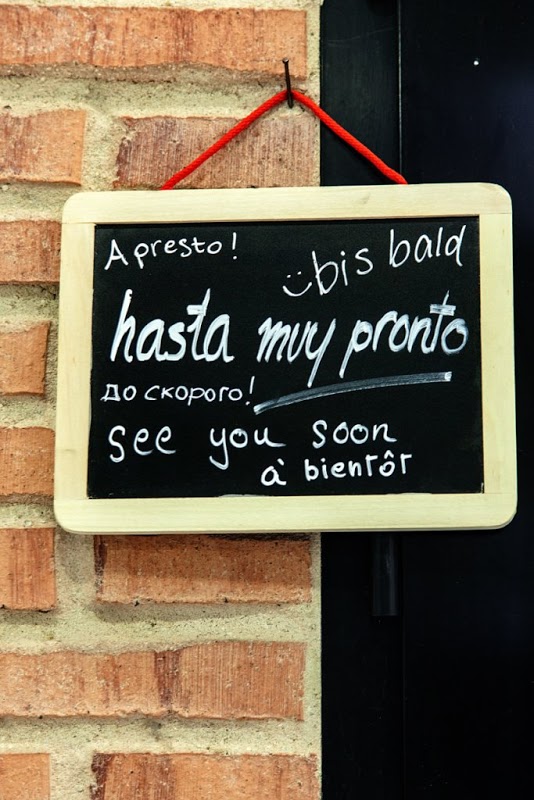 A presto!
bis bald
hasta muy pronto
до скорого!
see you soon
à bientôt